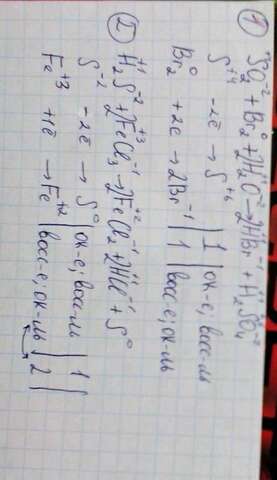 ① S⁺⁴O₂⁻² + Br₂⁰ + 2H₂⁺O⁻² → 2H⁺Br⁻¹ + H₂⁺S⁺⁶O₄⁻²
S⁺⁴ -2ē → S⁺⁶ | 1 | ок-е; восс-ль
Br₂⁰ +2ē → 2Br⁻¹ | 1 | восс-е; ок-ль
② H₂⁺¹S⁻² + 2Fe⁺³Cl₃⁻¹ → 2Fe⁺²Cl₂⁻¹ + 2H⁺Cl⁻¹ + S⁰
S⁻² -2ē → S⁰ | ок-е; восс-ль | 1 |
Fe⁺³ +1ē → Fe⁺² | восс-е; ок-ль | 2 |